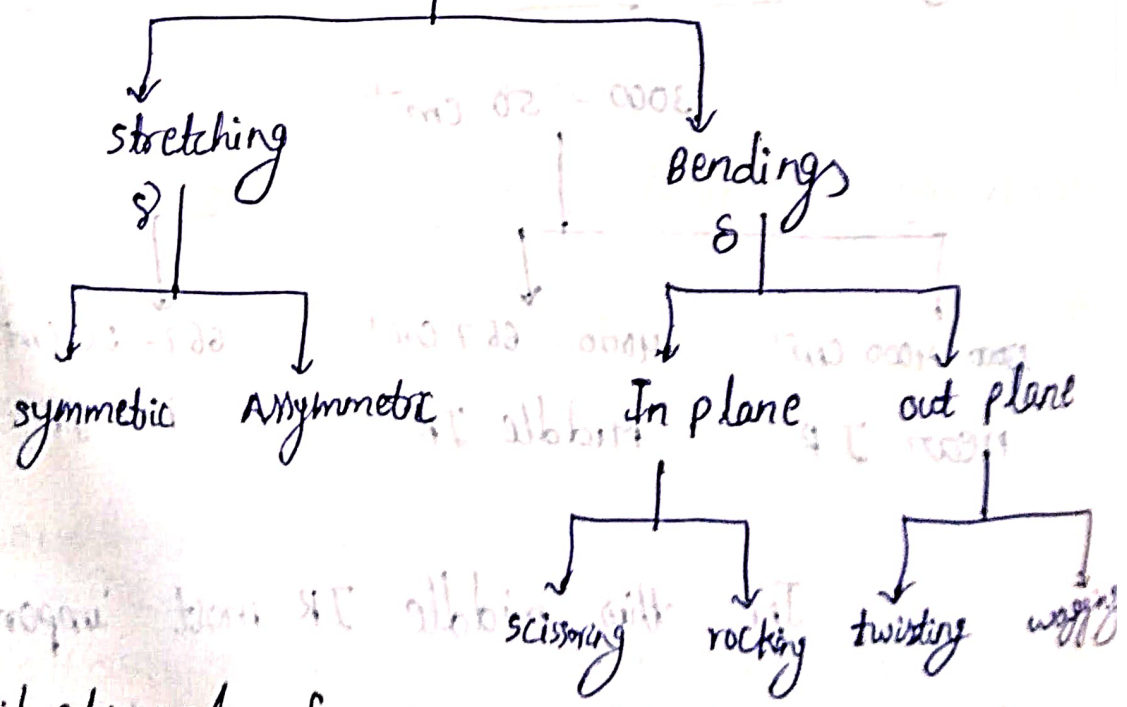 stretching
Bendings
δ
symmetric Assymmetrc In plane out plane
scissoring rocking twisting wagging